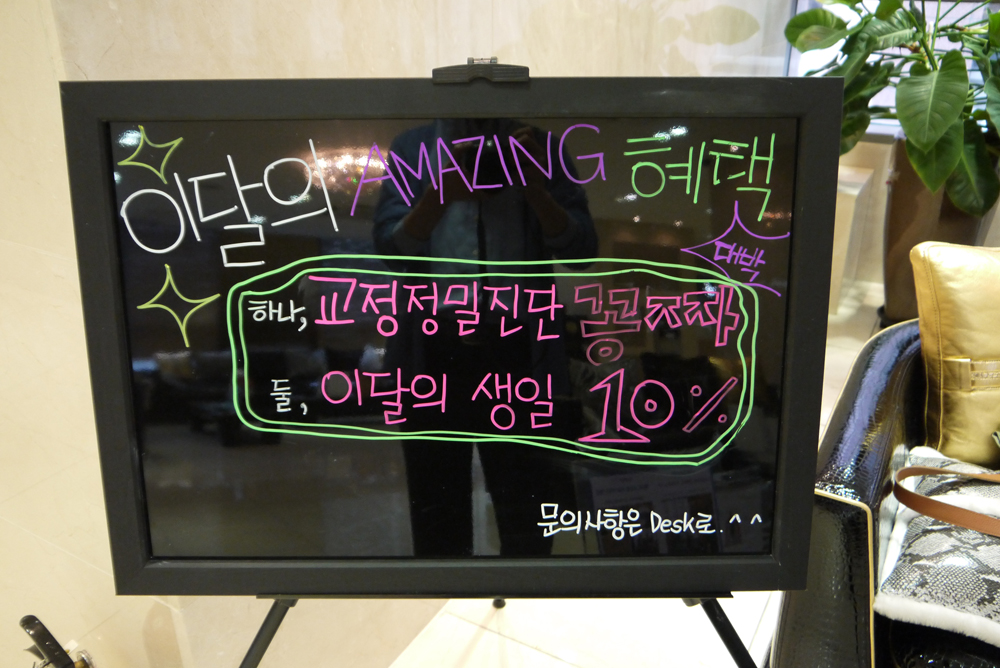 이달의 AMAZING 혜택
대박
하나, 교정정밀진단 공짜
둘, 이달의 생일 10%
문의사항은 Desk로. ^ ^